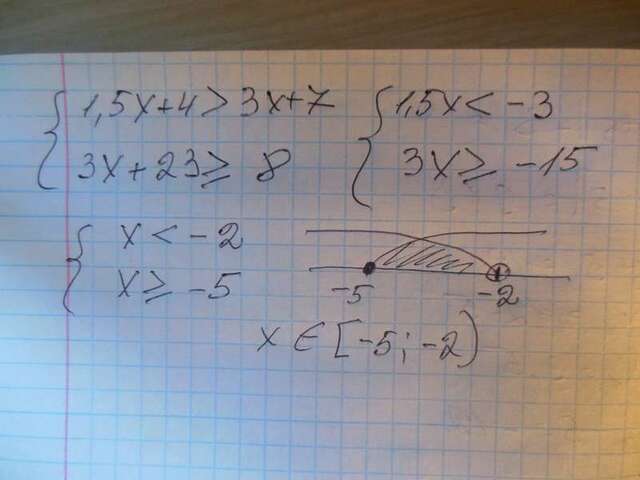 1,5x+4>3x+7
3x+23≥8
1,5x<-3
3x≥-15
x<-2
x≥-5
-5
-2
x∈[-5;-2)